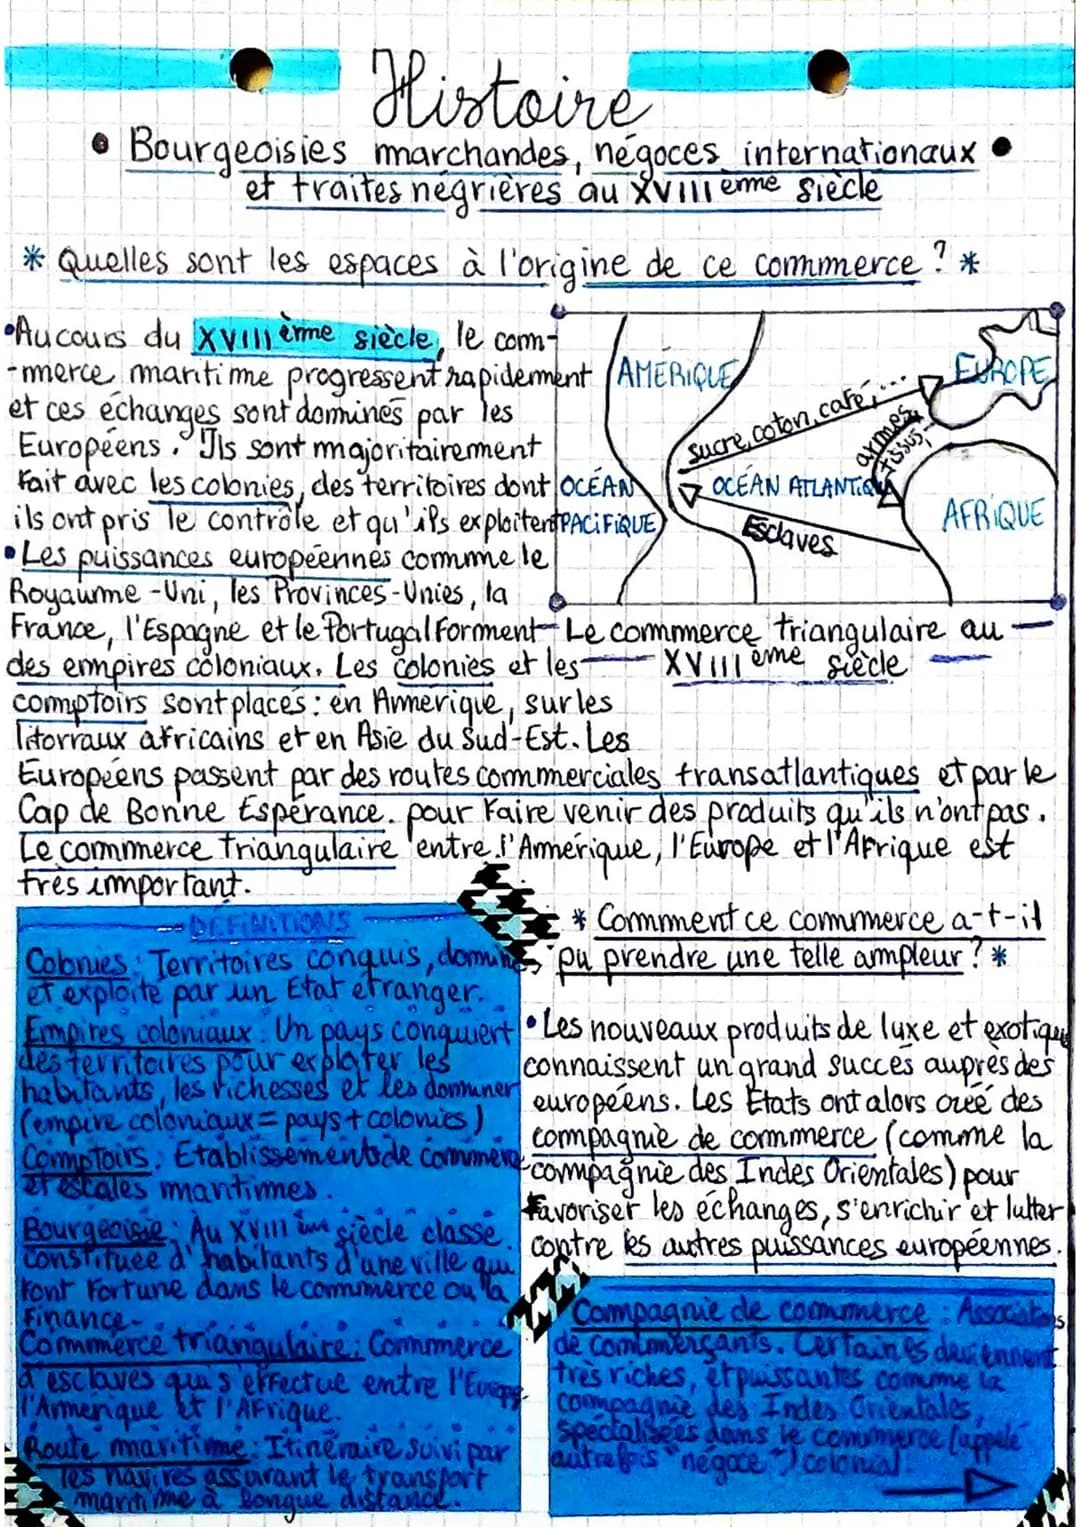 Histoire
• Bourgeoisies marchandes, négoces internationaux •
et traites négrières au XVIII ème siècle
* Quelles sont les espaces à l'origine de ce commerce ? *
•Au cours du XVIII ème siècle, le com-
-merce maritime progressent rapidement
et ces échanges sont dominés par les
Européens. Ils sont majoritairement
fait avec les colonies, des territoires dont
ils ont pris le contrôle et qu'ils exploitent
•Les puissances européennes comme le
Royaume-Uni, les Provinces-Unies, la
France, l'Espagne et le Portugal forment
des empires coloniaux. Les colonies et les
comptoirs sont placés : en Amérique, sur les
litorraux africains et en Asie du Sud-Est. Les
Européens passent par des routes commerciales transatlantiques et par le
Cap de Bonne Espérance. pour faire venir des produits qu'ils n'ont pas.
Le commerce triangulaire entre l'Amérique, l'Europe et l'Afrique est
très important.
AMÉRIQUE
EUROPE
sucre, coton, café, ...
armes
tissus
OCÉAN
PACIFIQUE
OCÉAN ATLANTIQ
AFRIQUE
Esclaves
Le commerce triangulaire au
XVIII ème siècle
DÉFINITIONS
Colonies : Territoires conquis, dominés,
et exploité par un Etat étranger.
Empires coloniaux : Un pays conquiert
des territoires pour exploiter les
habitants, les richesses et les dominer
(empire coloniaux = pays + colonies)
Comptoirs : Etablissements de commerce
et escales maritimes.
Bourgeoisie : Au XVIII ème siècle classe
constituée d'habitants d'une ville qui
font fortune dans le commerce ou la
Finance.
Commerce triangulaire : Commerce
d'esclaves qui s'effectue entre l'Europe,
l'Amérique et l'Afrique.
Route maritime : Itinéraire suivi par
les navires assurant le transport
maritime à longue distance.
* Comment ce commerce a-t-il
pu prendre une telle ampleur ? *
•Les nouveaux produits de luxe et exotique
connaissent un grand succès auprès des
européens. Les Etats ont alors créé des
compagnie de commerce (comme la
compagnie des Indes Orientales) pour
favoriser les échanges, s'enrichir et lutter
contre les autres puissances européennes.
Compagnie de commerce : Associations
de commerçants. Certaines deviennent
très riches, et puissantes comme la
compagnie des Indes Orientales,
spécialisées dans le commerce (appelé
autrefois "négoce") colonial